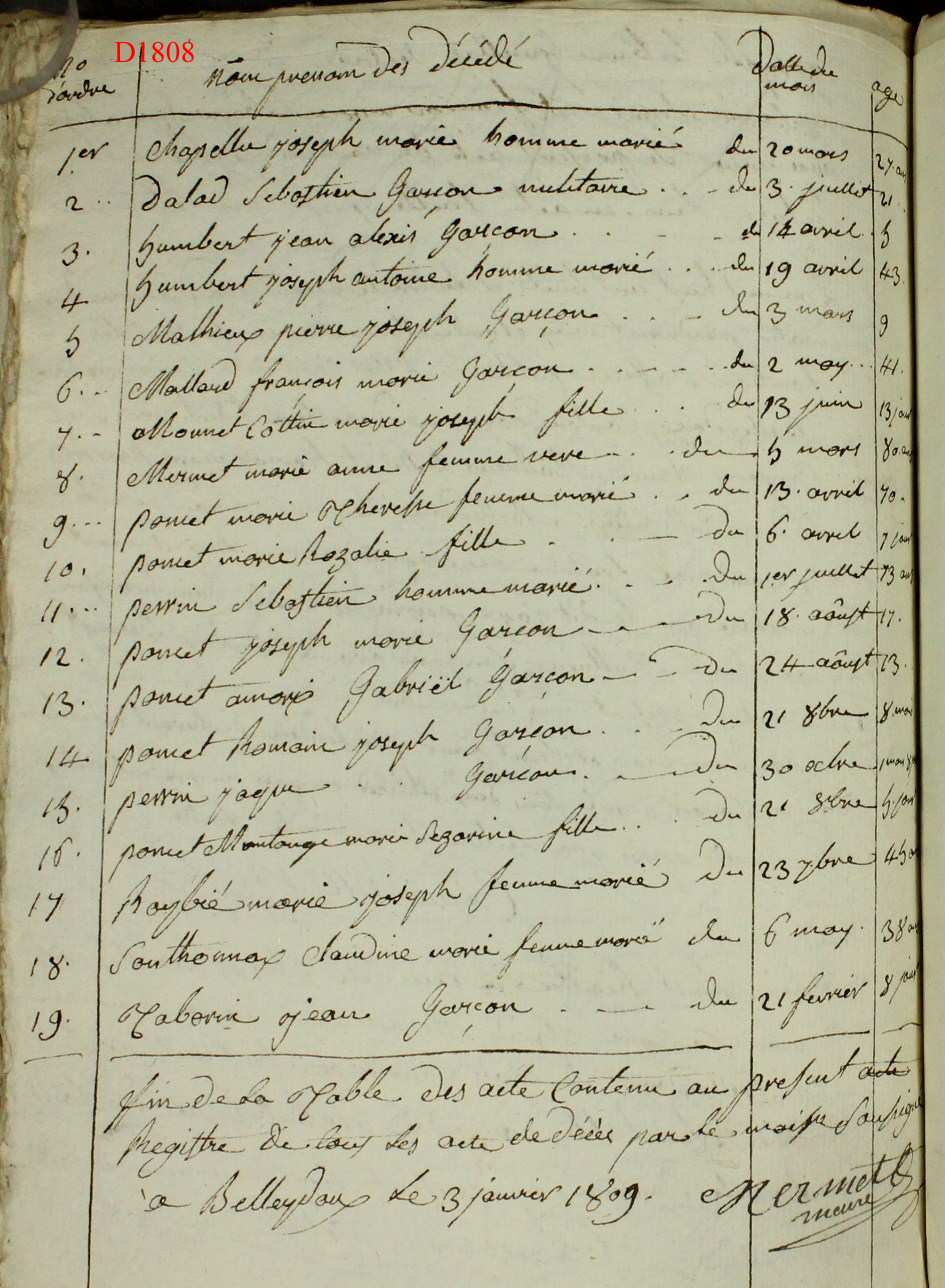 D1808
No d'ordre Nom prenom des décédé Datte du mois age
1er Chapellu joseph marie homme marié du 20 mars 27 ans
2 Dalod Sebastien Garçon militaire du 3 juillet 21
3. humbert jean alexis Garçon du 14 avril 5
4 humbert joseph antoine homme marié du 19 avril 43
5 Mathieux pierre joseph Garçon du 3 mars 9
6 Mallard françois marie Garçon du 2 may 41.
7 Monnet Cottin marie joseph fille du 13 juin 13 jour
8. Mermet marie anne femme veve du 5 mars 80 ans
9 poncet marie Therese femme marié du 13. avril 70.
10. poncet marie Rozalie fille du 6. avril 7 jour
11. perrin Sebastien homme marié du 1er juillet 73 ans
12. poncet joseph marie Garçon du 18. aôust 17.
13. poncet Gabriël Garçon du 24 aôust 13.
14 poncet Romain joseph Garçon du 21 8bre 8 mois
15. perrin jaque Garçon du 30 octre
16. poncet Montange marie Sezarine fille du 21 8bre 5 jour
17 Raybié marie joseph femme marié du 23 7bre 45 ans
18. Southonnax Claudine marie femme marié du 6 may. 38 ans
19. Taborin jean Garçon du 21 fevrier 8 jour
fin de La Table des acte Contenu au present acte
Registre de tous Les acte de Décés par Le maire Soussigné
a Belleydoux Le 3 janvier 1809. Mermet
maire